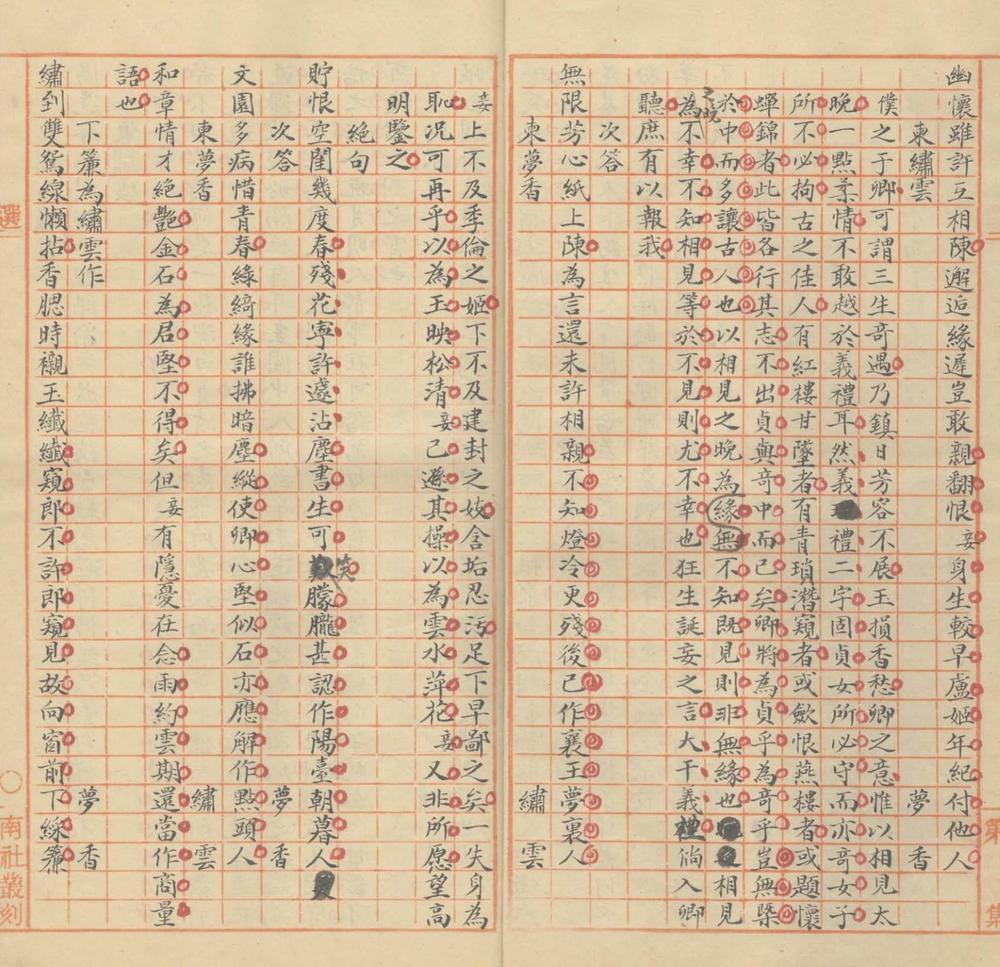 幽懷雖許互相陳邂逅緣遲豈敢親翻恨妾身生較早盧姬年紀付他人
東繡雲　夢香
僕之于卿可謂三生奇遇乃鎮日芳容不展玉損香愁卿之意惟以相見太
晚一點柔情不敢越於義禮耳然義禮二字固貞女所必守而亦奇女子
所不必拘古之佳人有紅樓甘墜者有青瑣潛窺者或歛恨燕樓者或題懷
蟬錦者此皆各行其志不出貞與奇中而已矣卿將為貞乎為奇乎豈無槩
於中而多讓古人也以相見之晚為緣無不知既見則非無緣也相見
之晚為不幸不知相見等於不見則尤不幸也狂生誕妄之言大干義禮倘入卿
聽庶有以報我
次答
無限芳心紙上陳為言還未許相親不知燈冷更殘後已作襄王夢裏人
東夢香　繡雲
妾上不及季倫之姬下不及建封之妓含垢忍污足下早鄙之矣一失身為
恥况可再乎以為玉映松清妾已遜其操以為雲水萍花妾又非所愿望高
明鑒之
絕句
貯恨空閨幾度春殘花寧許遽沾塵書生可笑朦朧甚認作陽臺朝暮人
次答　夢香
文園多病惜青春綠綺緣誰拂暗塵縱使卿心堅似石亦應解作點頭人
東夢香　繡雲
和章情才絕艷金石為君堅不得矣但妾有隱憂在念雨約雲期還當作商量
語也
下簾為繡雲作　夢香
繡到雙鴛線懶拈香腮時襯玉纖纖窺郎不許郎窺見故向窗前下綵簾
選
南社叢刻
第
集